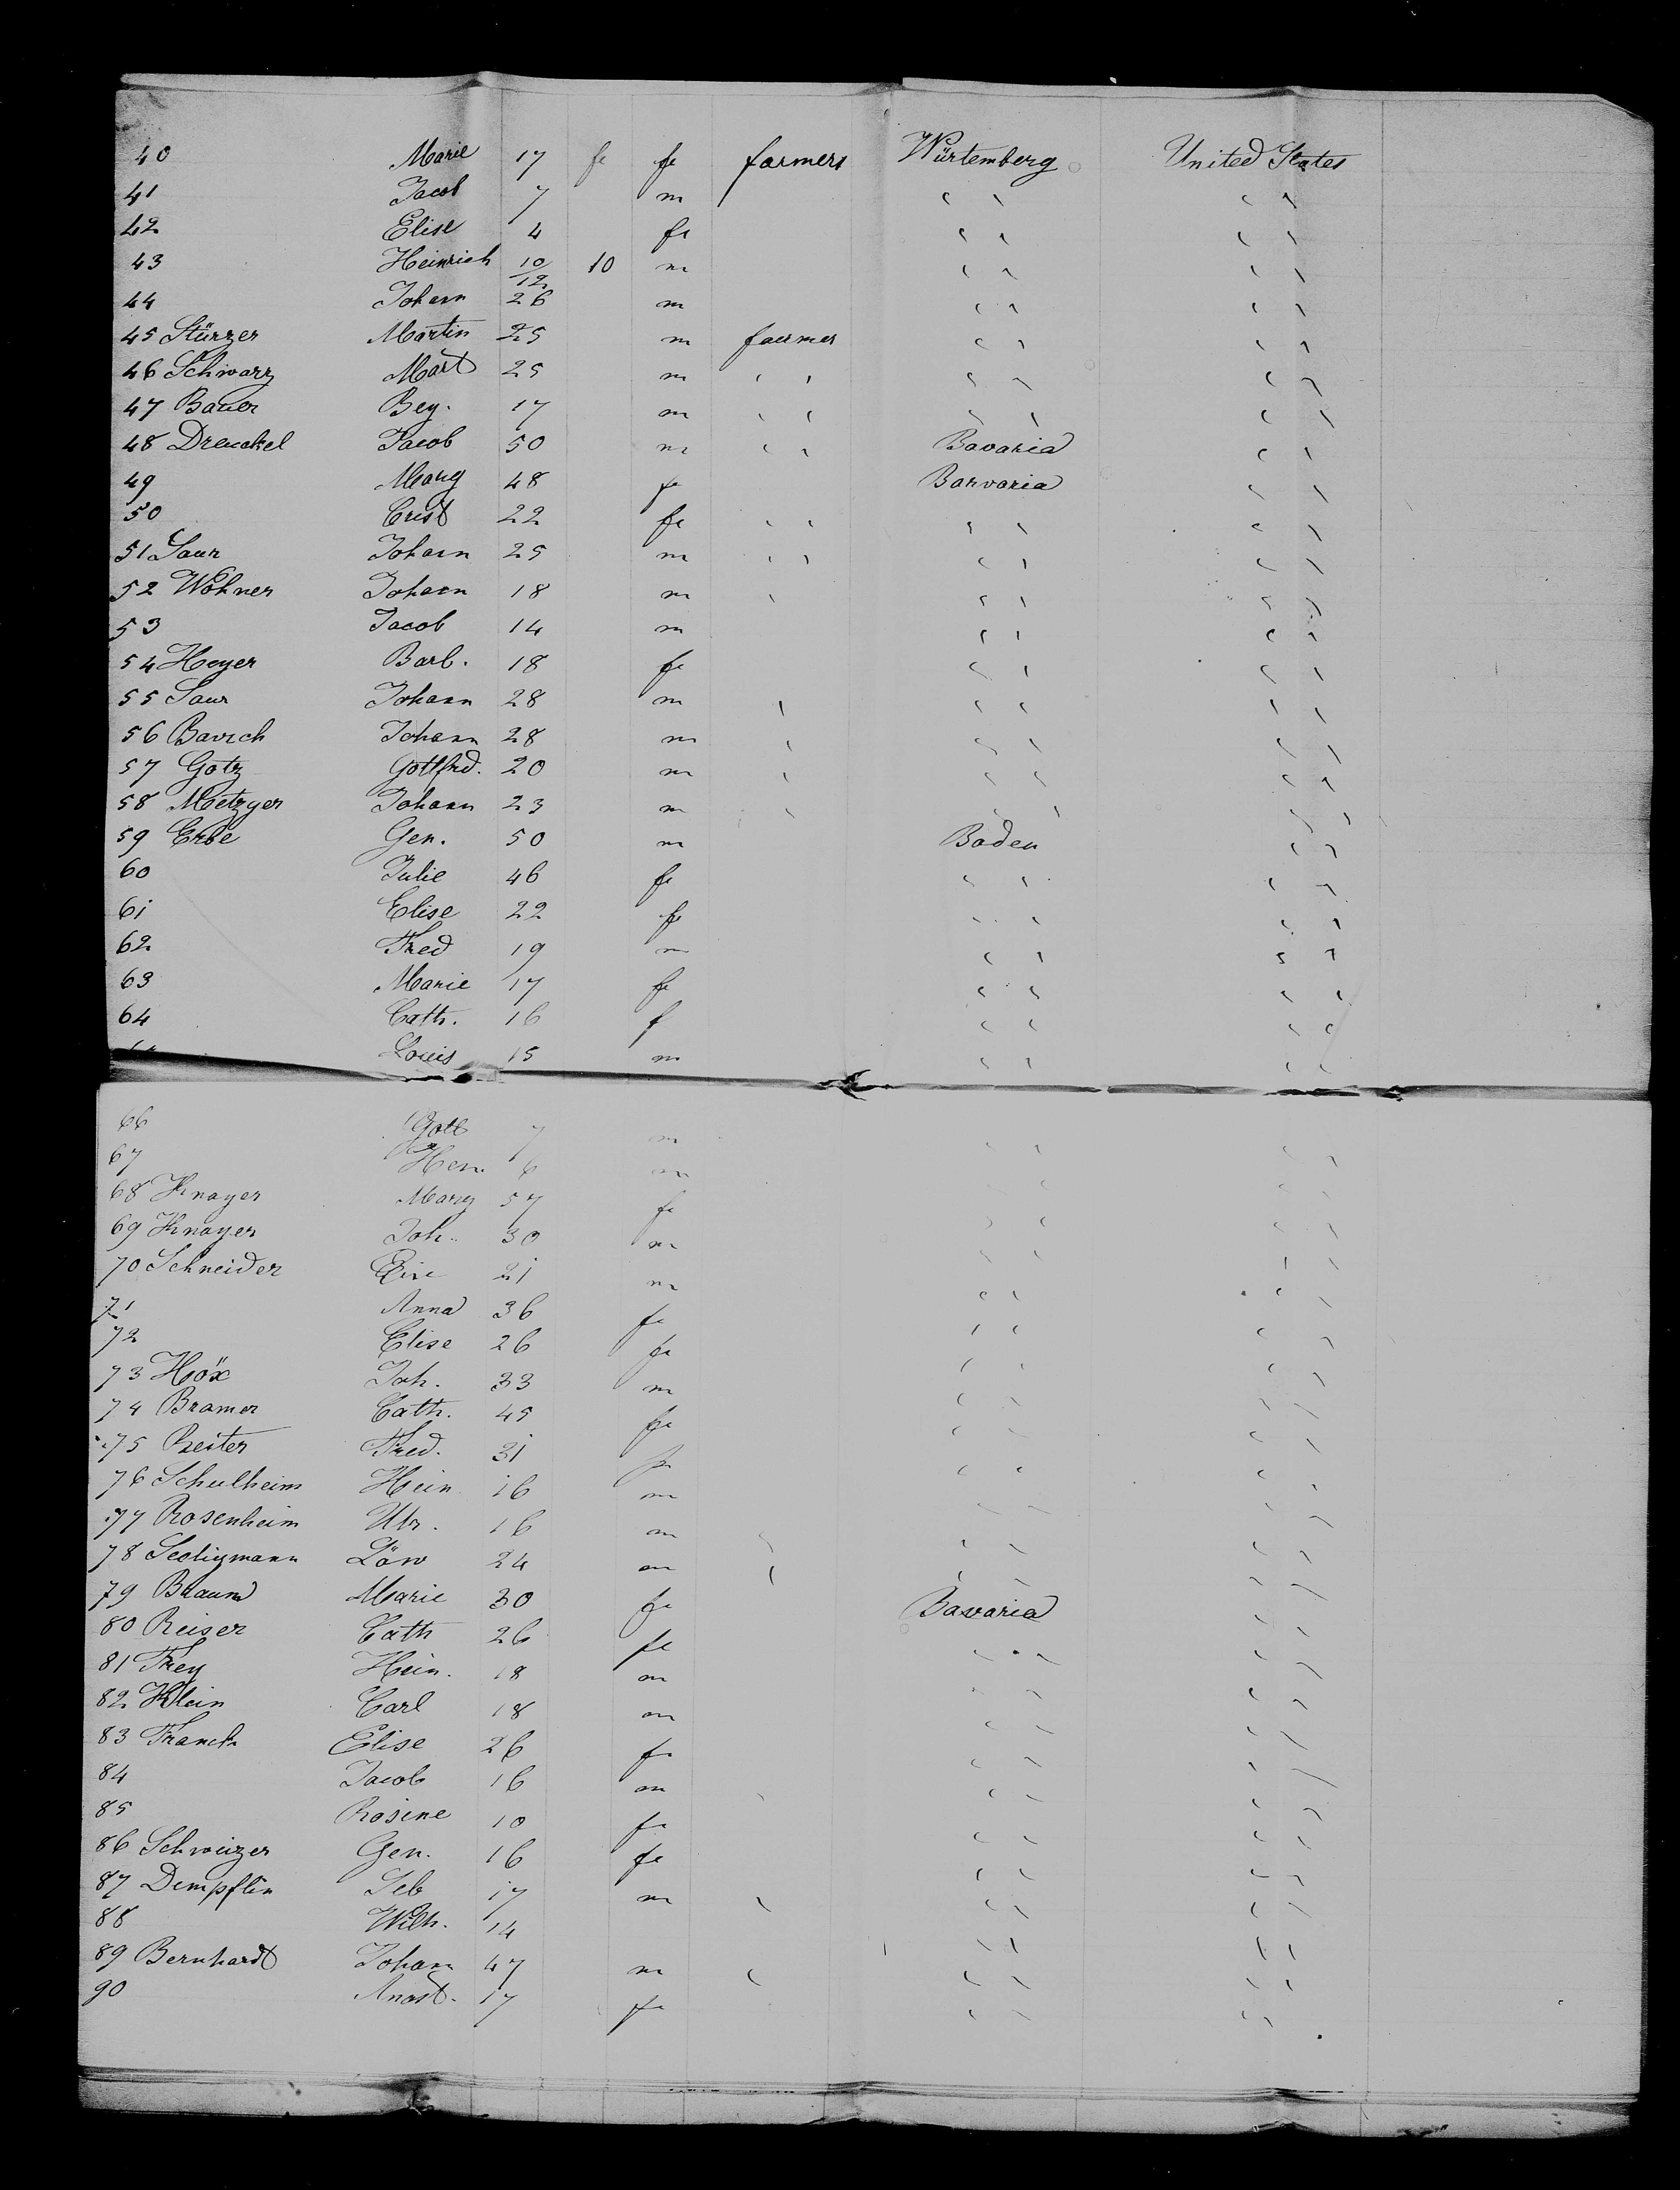 40 Marie 17 fe fe farmers Würtemberg United States
41 Jacob 7 m " "
42 Elise 4 fe " "
43 Heinrich 10/12 10 m " "
44 Johann 26 m " "
45 Stürzer Martin 25 m farmer " "
46 Schwarz Mart 25 m " " "
47 Bauer Beg. 17 m " " "
48 Drenckel Jacob 50 m " Bavaria "
49 Marg 48 fe Barvaria "
50 Crist 22 fe " " "
51 Saur Johann 25 m " " "
52 Wöhner Johann 18 m " " "
53 Jacob 14 m " "
54 Heyer Barb. 18 fe " "
55 Saur Johann 28 m " " "
56 Baurch Johann 28 m " " "
57 Götz Gottfrd. 20 m " " "
58 Metzger Johann 23 m " " "
59 Erbe Gen. 50 m Baden "
60 Julie 46 fe " "
61 Elise 22 fe " "
62 Fred 19 m " "
63 Marie 17 fe " "
64 Cath. 16 f " "
Louis 15 m " "
66 Gott 7 m " "
67 Hen. 6 m " "
68 Knayer Marg 57 fe " "
69 Knayer Joh. 30 m " "
70 Schneider 21 m " "
71 Anna 36 fe " "
72 Elise 26 fe " "
73 Höx Joh. 33 m " "
74 Bramer Cath. 45 fe " "
75 Reiter Fred. 31 " "
76 Schulheim Hein 16 m " "
77 Rosenheim Ulr. 16 m " " "
78 Seeligmann Löw 24 m " " "
79 Braun Marie 30 fe Bavaria "
80 Reiser Cath 26 fe " "
81 Frey Hein. 18 m " "
82 Klein Carl 18 m " "
83 Franck Elise 26 fe " "
84 Jacob 16 m " " "
85 Rosine 10 fe " "
86 Schweizer Gen. 16 fe " "
87 Dempflin Seb 17 m " " "
88 Wilh. 14 " "
89 Bernhardt Johann 47 m " " "
90 Anast. 17 fe " "